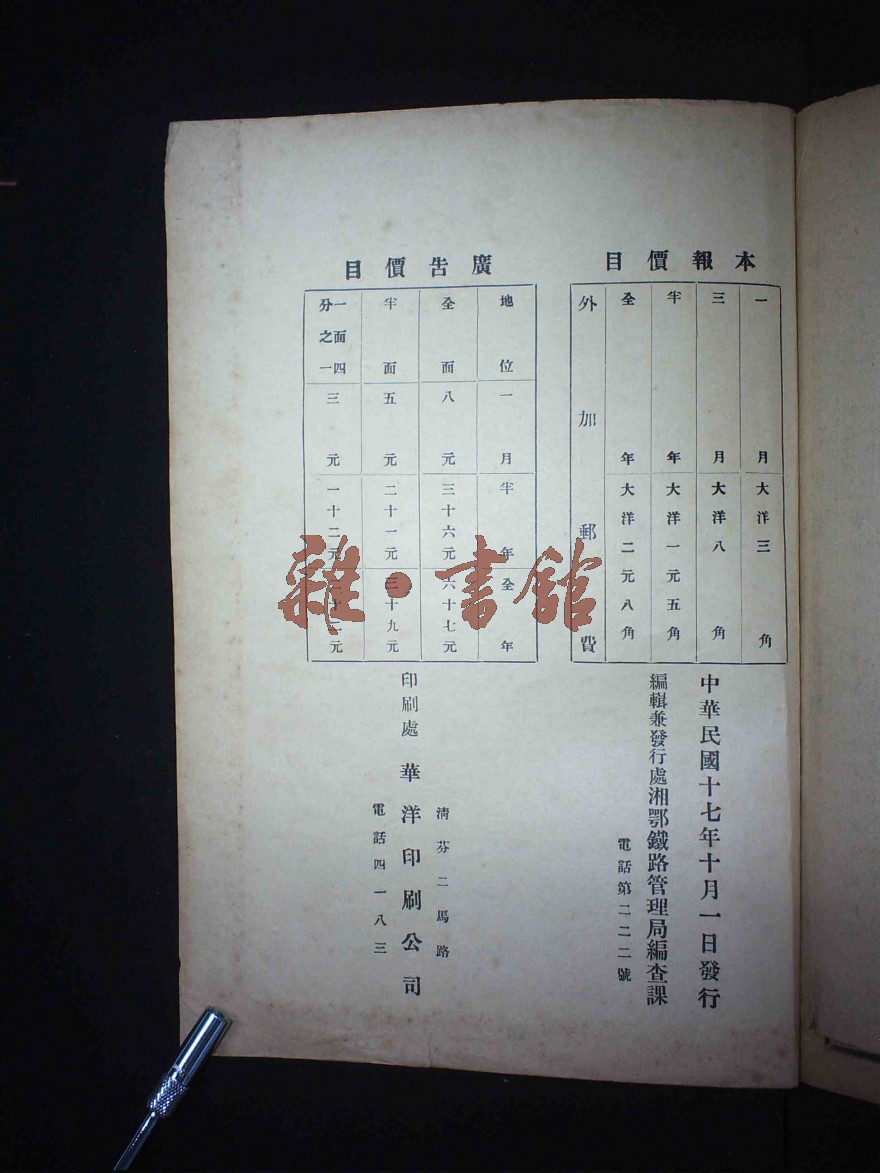 本報價目
一月大洋三角
三月大洋八角
半年大洋一元五角
全年大洋二元八角
外加郵費
廣告價目
地位一月半年全年
全面八元三十六元六十七元
半面五元二十一元三十九元
一面四分之一三元一十二元二十二元
中華民國十七年十月一日發行
編輯兼發行處湘鄂鐵路管理局編查課
電話第二二二號
清芬二馬路
印刷處 華洋印刷公司
電話四一八三
雜·書館